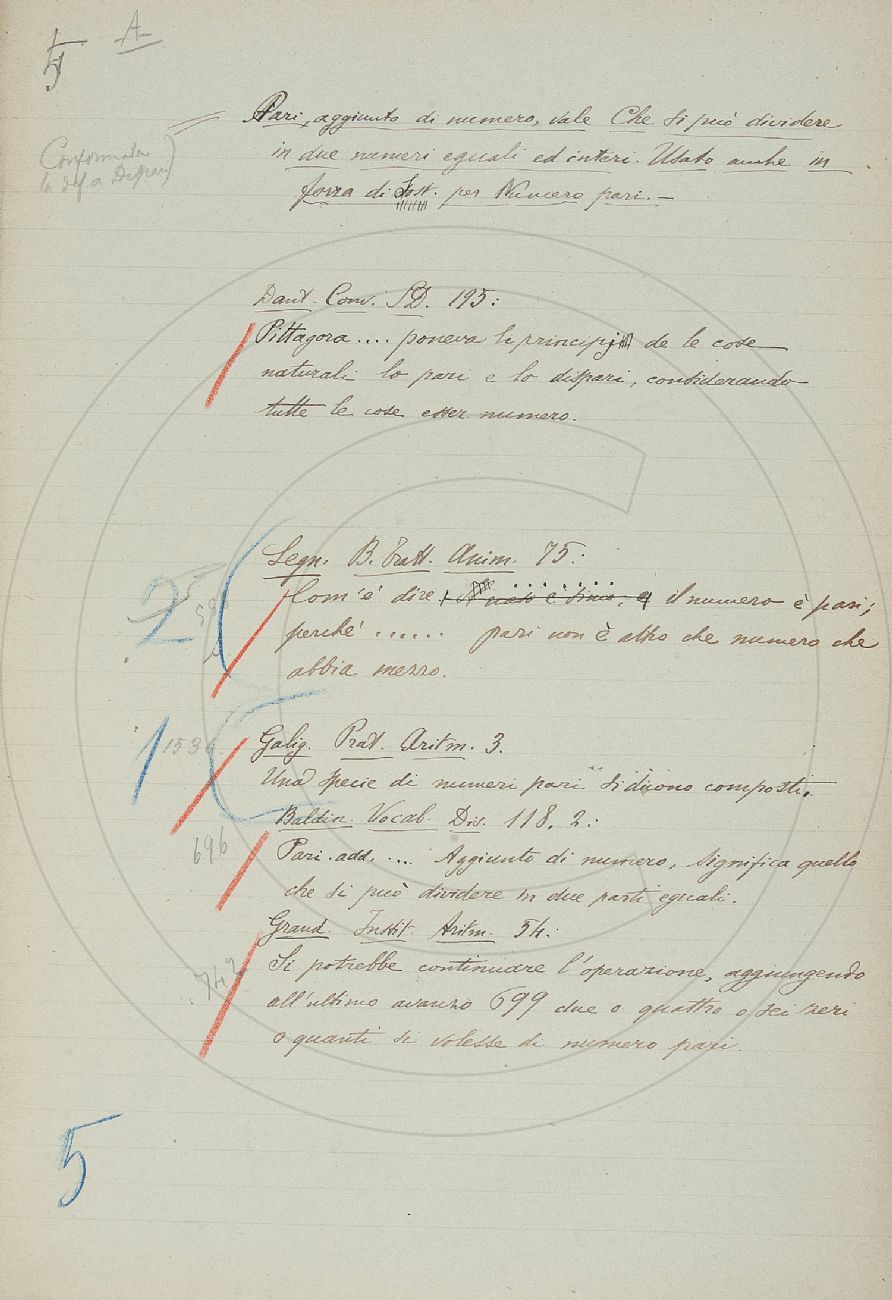 5 A
Pari, aggiunto di numero, vale Che si può dividere
in due numeri eguali ed interi. Usato anche in
forza di Sost. per Numero pari. —
Conformata
la def. a Dispari)
Dant. Conv. 195:
Pittagora .... poneva li principj de le cose
naturali lo pari e lo dispari, considerando
tutte le cose esser numero.
2
Segn. B. Tratt. Anim. 75:
Com'è dire, il numero è pari;
perchè ...... pari non è altro che numero che
abbia mezzo.
1 1536
Galig. Prat. Aritm. 3.
Una specie di numeri pari si dicono composti.
Baldin. Vocab. Dis. 118. 2:
696
Pari. add. .... Aggiunto di numero, significa quello
che si può dividere in due parti eguali.
Grand. Instit. Aritm. 54:
742
Si potrebbe continuare l'operazione, aggiungendo
all'ultimo avanzo 699 due o quattro o sei zeri
o quanti si volesse di numero pari.
5